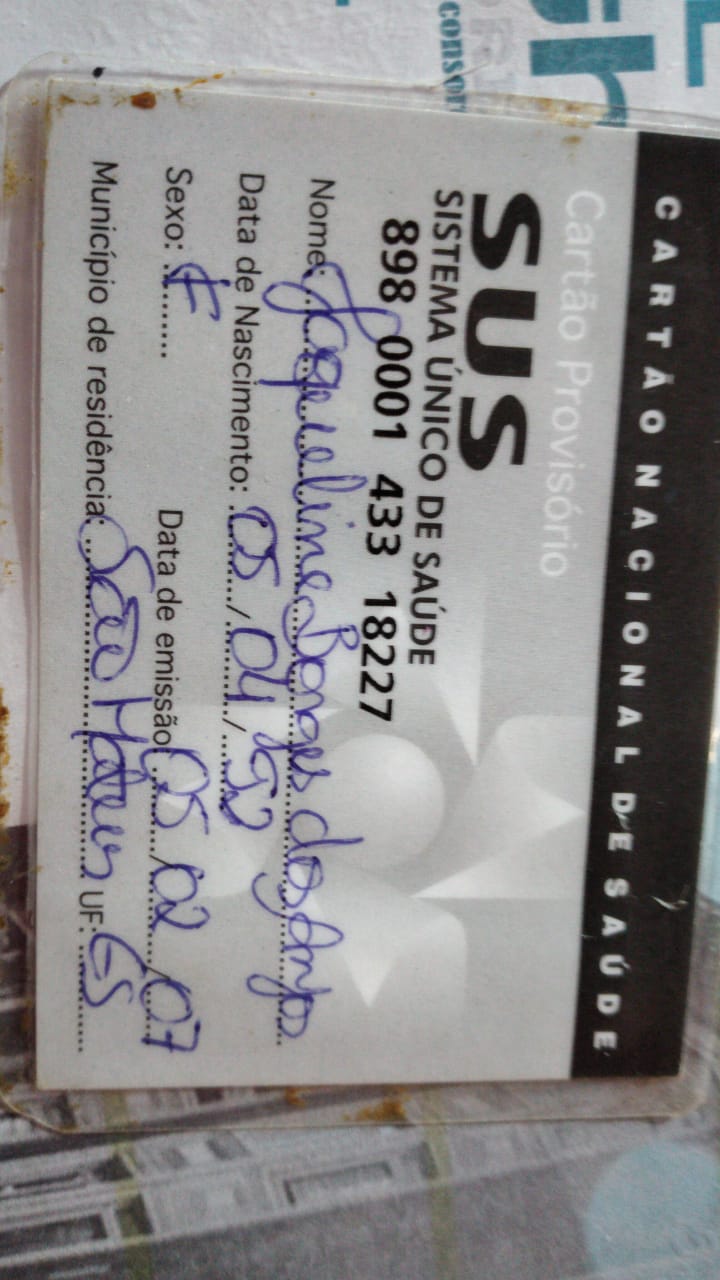 CARTÃO NACIONAL DE SAÚDE
Cartão Provisório
SUS
SISTEMA ÚNICO DE SAÚDE
898 0001 433 18227
Nome: Jaqueline Borges dos Anjos
Data de Nascimento: 05/04/92
Sexo: F Data de emissão: 05/02/07
Município de residência: São Mateus UF: ES
conson